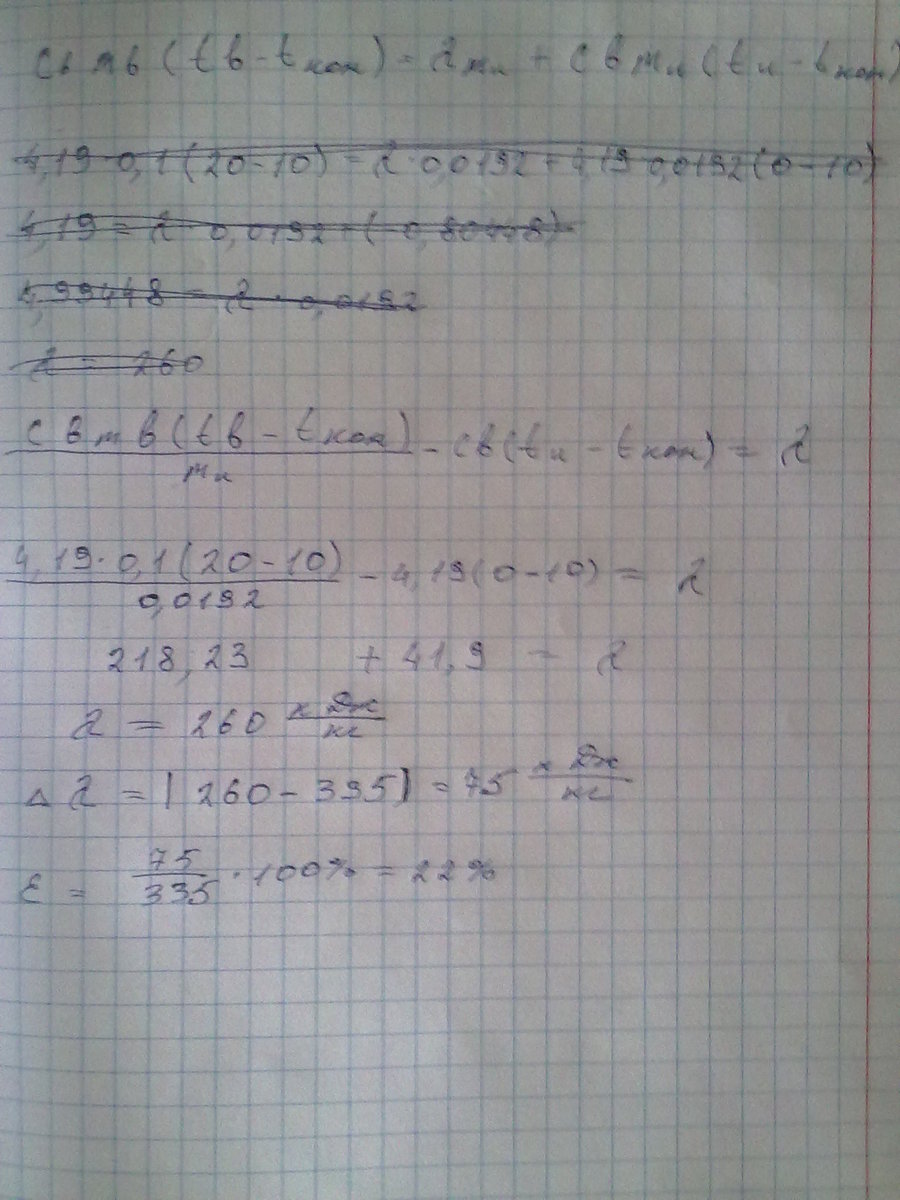 cв mв (tв - tкон) = λmл + cв mл (tл - tкон)
4,19·0,1(20-10) = λ·0,0192 + 4,19·0,0192(0-10)
4,19 = λ·0,0192 + (-0,80448)
4,99448 = λ·0,0192
λ = 260
cв mв (tв - tкон) / mл - cв(tл - tкон) = λ
4,19·0,1(20-10) / 0,0192 - 4,19(0-10) = λ
218,23 + 41,9 = λ
λ = 260 кДж/кг
Δλ = |260-335| = 75 кДж/кг
ε = 75/335 · 100% = 22%